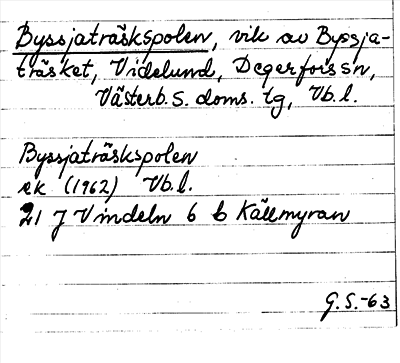 Byssjaträskspolen, vik av Byssja-
träsket, Videlund, Degerfors sn,
Västerb. s. doms. tg, Vb. l.
Byssjaträskspolen
ek (1962) Vb. l.
21 J Vindeln 6 b Källmyran
G. S. -63